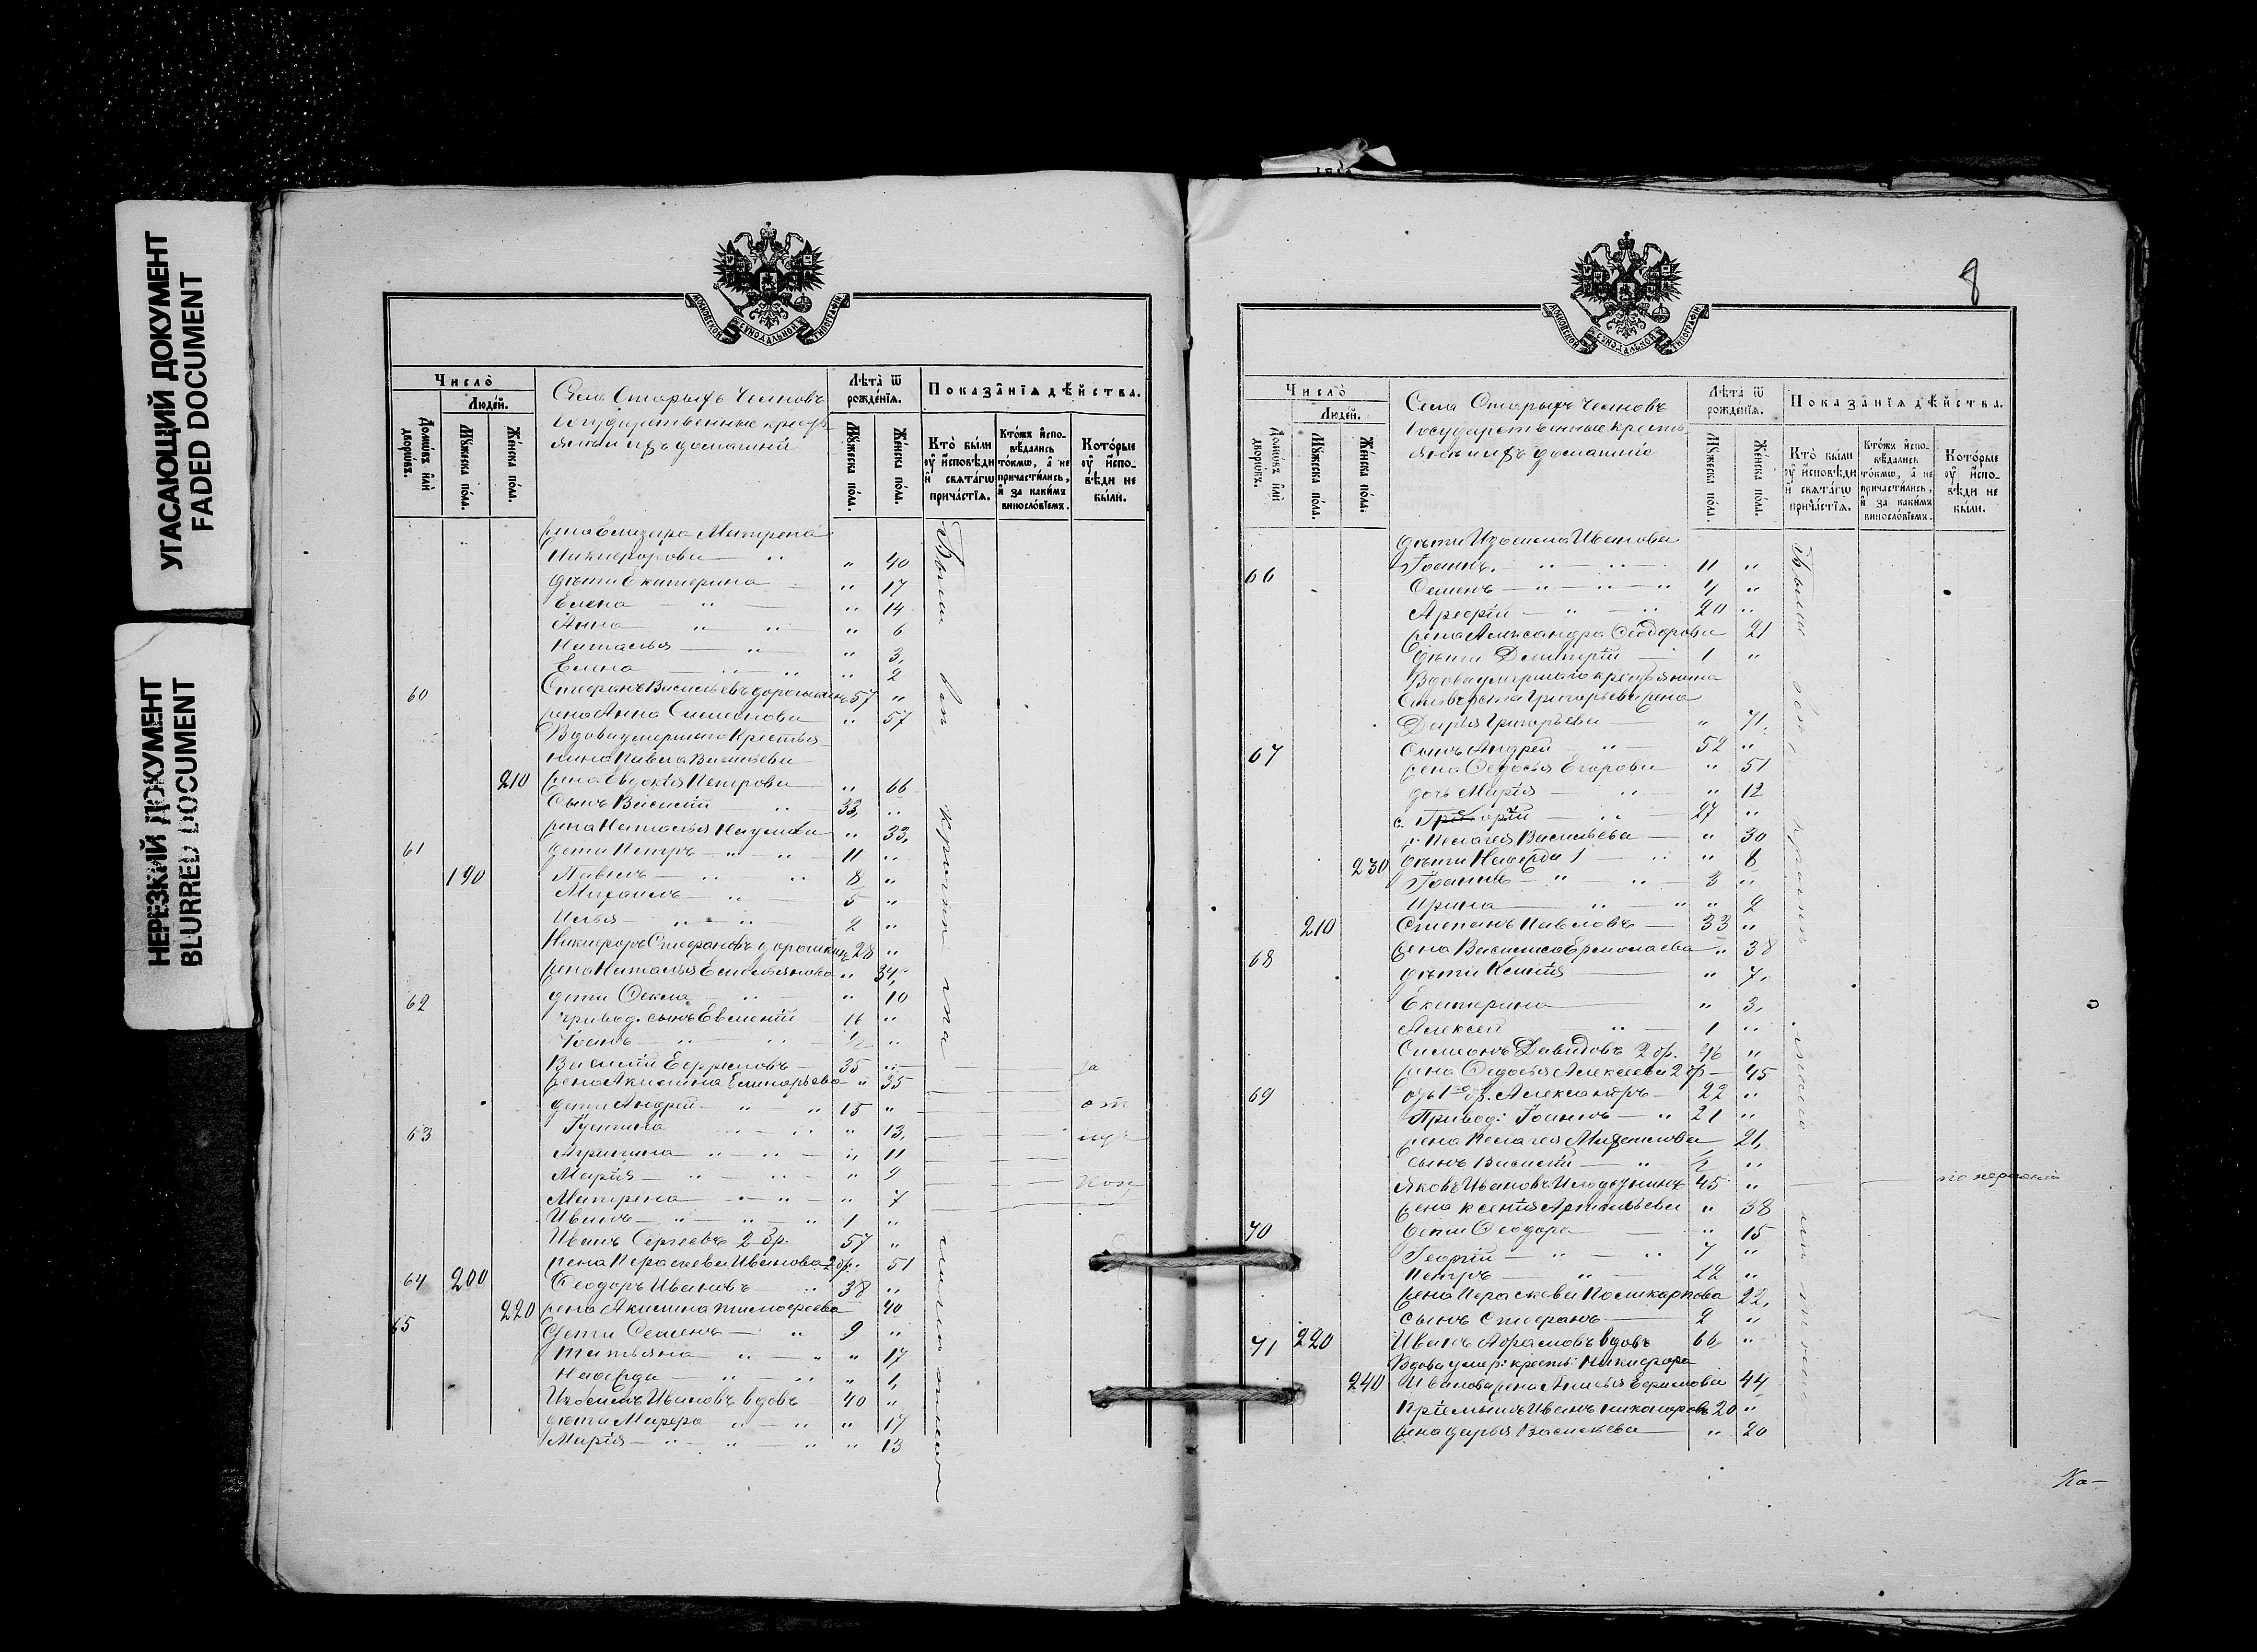 УГАСАЮЩИЙ ДОКУМЕНТ
FADED DOCUMENT
НЕРЕЗКИЙ ДОКУМЕНТ
BLURRED DOCUMENT
МОСКОВСКОЙ СѴНОДАЛЬНОЙ ТИПОГРАФІИ
Число̀
Люде́й.
Домѡ́въ и҆лѝ дворѡ́въ.
Мꙋ́жеска по́ла.
Же́нска по́ла.
Села Старыхъ Челновъ
Государственные кресть
яне и ихъ домашніи
Лѣта̀ ѿ рожде́нїѧ.
Мꙋ́жеска по́ла.
Же́нска по́ла.
Показа̑нїѧ дѣ́йства.
Кто̀ бы́ли ᲂу҆ и҆сповѣди и҆ свѧта́гѡ прича́стїѧ.
Кто́жъ и҆сповѣдались то́кмѡ, а҆ не причасти́лись, и҆ за каки́мъ винословїемъ.
Кото́рые ᲂу҆ и҆сповѣди не бы́ли.
жена Елизара Матрена
Никифорова " 40
дѣти Екатерина " 17
Елена " 14
Анна " 6
Наталья " 3,
Елена " 2
60 Стефанъ Васильевъ дорошкинъ 57 "
жена Анна Симеонова " 57
Вдова умершаго Крестья
нина Павла Васильева
210 жена Евдокія Петрова " 66
Сынъ Василій 33, "
жена Наталья Наумова " 33,
61 дети Петръ 11 "
190 Павелъ 8 "
Михаилъ 5 "
Илья 2 "
Никифоръ Стефановъ дорошкинъ 28 "
жена Наталья Емельянова " 34,
62 дети Фекла " 10
привод. сынъ Евгеній 16 "
Іоаннъ 1/2 "
Василій Ефремовъ 35 "
жена Акилина Елизарьева " 35
дети Андрей 15 "
63 Іустина " 13,
Агрипина " 11
Марія " 9
Матрена " 7
Иванъ 1 "
Иванъ Сергеевъ 2 бр. 57 "
жена Параскева Иванова 2 бр. 51
64 200 Ѳеодоръ Ивановъ 38 "
65 220 жена Акилина Тимофеева 40
Дети Семенъ 9 "
Татьяна " 17
Надежда " 1,
Изосимъ Ивановъ вдовъ 40 "
дети Марфа " 17
Марія " 13
8
МОСКОВСКОЙ СѴНОДАЛЬНОЙ ТИПОГРАФІИ
Число̀
Люде́й.
Домѡ́въ и҆лѝ дворѡ́въ.
Мꙋ́жеска по́ла.
Же́нска по́ла.
Села Старыхъ Челновъ
Государственные кресть
яне и ихъ домашніе
Лѣта̀ ѿ рожде́нїѧ.
Мꙋ́жеска по́ла.
Же́нска по́ла.
Показа̑нїѧ дѣ́йства.
Кто̀ бы́ли ᲂу҆ и҆сповѣди и҆ свѧта́гѡ прича́стїѧ.
Кто́жъ и҆сповѣдались то́кмѡ, а҆ не причасти́лись, и҆ за каки́мъ винословїемъ.
Кото́рые ᲂу҆ и҆сповѣди не бы́ли.
дѣти Изосима Иванова
66 Іоаннъ. 11 "
Семенъ 4 "
20 "
жена Александра Ѳеодорова 21
дѣти Димитрій 1 "
Вдова умершаго крестьянина
Григорьева жена
Дарья Григорьева " 71.
67 Сынъ Андрей 52 "
жена Федосья Егорова " 51
дочь Марія " 12
с. 27 "
ж Пелагея Васильева " 30
230 дѣти Надежда " 6
Іоаннъ 3 "
Ирина " 2
210 Степанъ Павловъ 33 "
68 жена Василиса Ермолаева " 38
дѣти Ксенія " 7,
Екатерина " 3,
Алексей 1 "
Симеонъ Давидовъ 2 бр. 46 "
жена Федосья Алексеева 2 бр 45
69 отъ 1го бр. Александръ 22 "
Привод: Іоаннъ 21 "
жена Пелагея Михаилова 21,
сынъ Василій "
Яковъ Ивановъ 45 " по нерадению
жена Ксенія " 38
70 дети Ѳеодора " 15
Георгій 7 "
Петръ 22 "
жена Параскева Поликарпова 22,
сынъ Стефанъ 2 "
71 220 Иванъ Абрамовъ вдовъ 66 "
Вдова умер: кресть: Никифора
240 Иванова жена Анисья Ефимова 44
Пріемышъ Иванъ Никаноровъ 20 "
жена Дарья Васильева " 20
Ка-